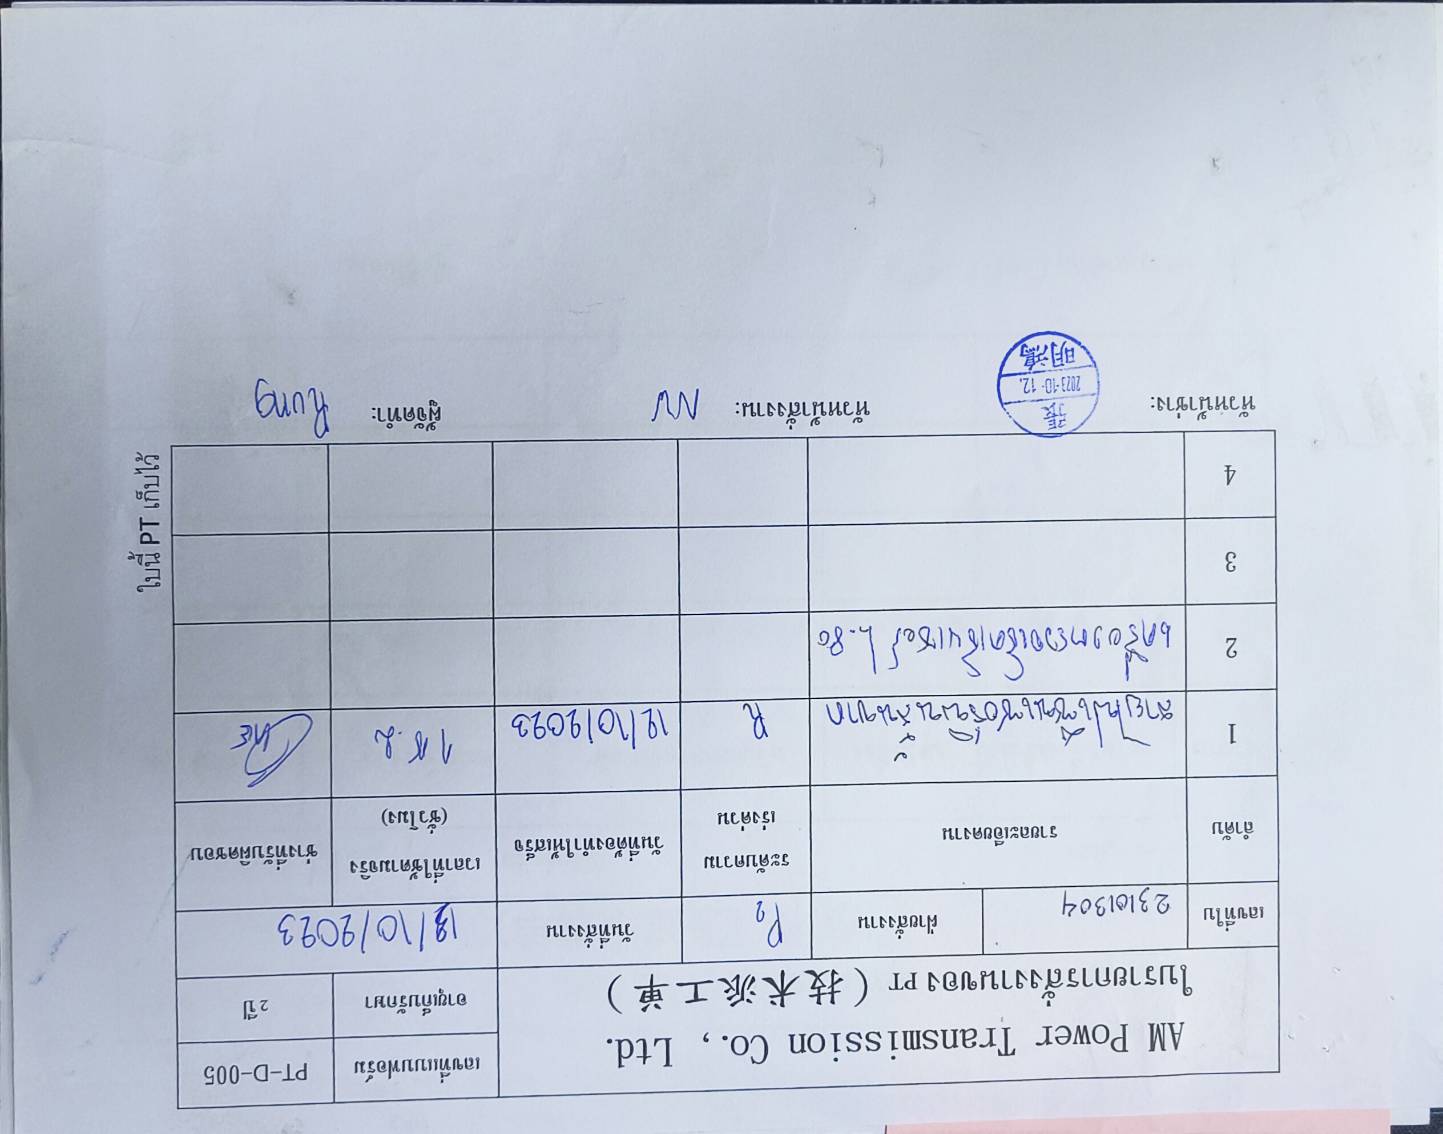 AM Power Transmission Co., Ltd.
ใบรายการสั่งงานของ PT (技术派工单)
เลขที่แบบฟอร์ม PT-D-005
อายุเก็บรักษา 2 ปี
เลขที่ใบ 23101304 ฝ่ายสั่งงาน P2 วันที่สั่งงาน 12/10/2023
ลำดับ รายละเอียดงาน ระดับความเร่งด่วน วันที่ต้องทำให้เสร็จ เวลาที่ใช้ตามจริง (ชั่วโมง) ช่างที่รับผิดชอบ
1 สายไฟเซ็นเซอร์พินสั้นขาด R 12/10/2023 1 ช.ม
2 เครื่องตรวจเช็คเซ็นเซอร์ L-80
3
4
หัวหน้าช่าง: 張 2023-10-12. 明鴻 หัวหน้าสั่งงาน: NW ผู้จัดทำ: Rung
ใบนี้ PT เก็บไว้